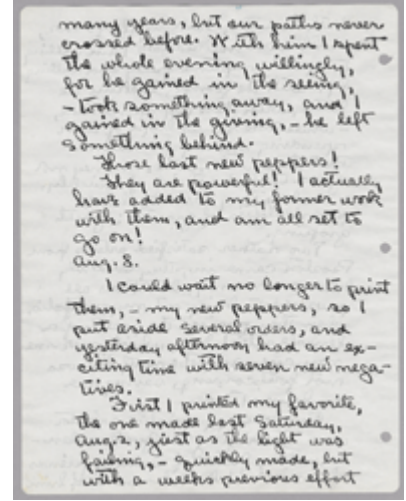 many years, but our paths never
crossed before. With him I spent
the whole evening willingly,
for he gained in the seeing,
- took something away, and I
gained in the giving, - he left
something behind.
Those last new peppers!
They are powerful! I actually
have added to my former work
with them, and am all set to
go on!
Aug. 8.
I could wait no longer to print
them, - my new peppers, so I
put aside several orders, and
yesterday afternoon had an ex-
citing time with seven new nega-
tives.
First I printed my favorite,
the one made last Saturday,
Aug. 2, just as the light was
failing, - quickly made, but
with a weeks previous effort